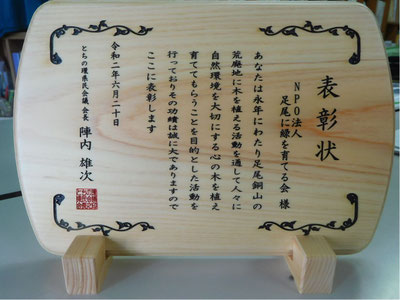 表彰状
NPO法人
足尾に緑を育てる会 様
あなたは永年にわたり足尾銅山の
荒廃地に木を植える活動を通して人々に
自然環境を大切にする心の木を植え
育ててもらうことを目的とした活動を
行っておりその功績は誠に大でありますので
ここに表彰します
令和二年六月二十日
とちの環県民会議 会長 陣内 雄次